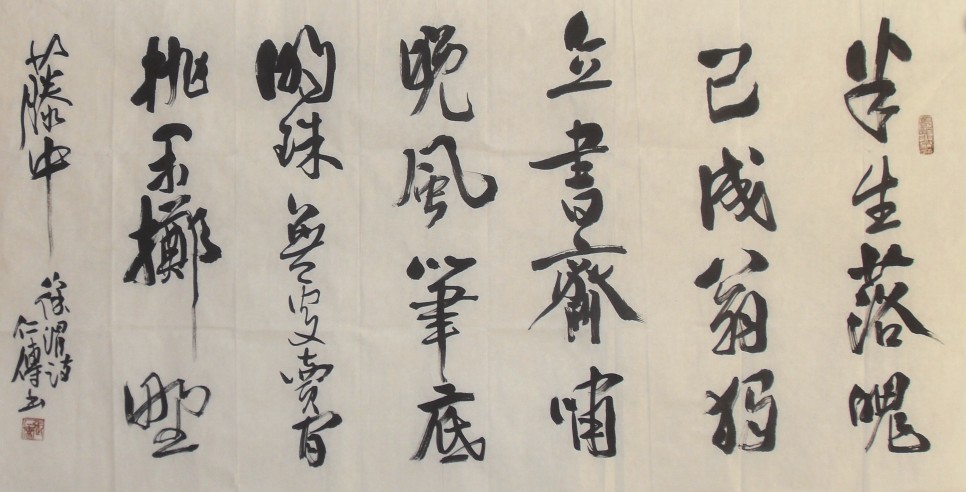 半生落魄
已成翁獨
立書齋嘯
晚風筆底
明珠無處賣閒
抛閒擲野
藤中
徐渭詩
仁傳书